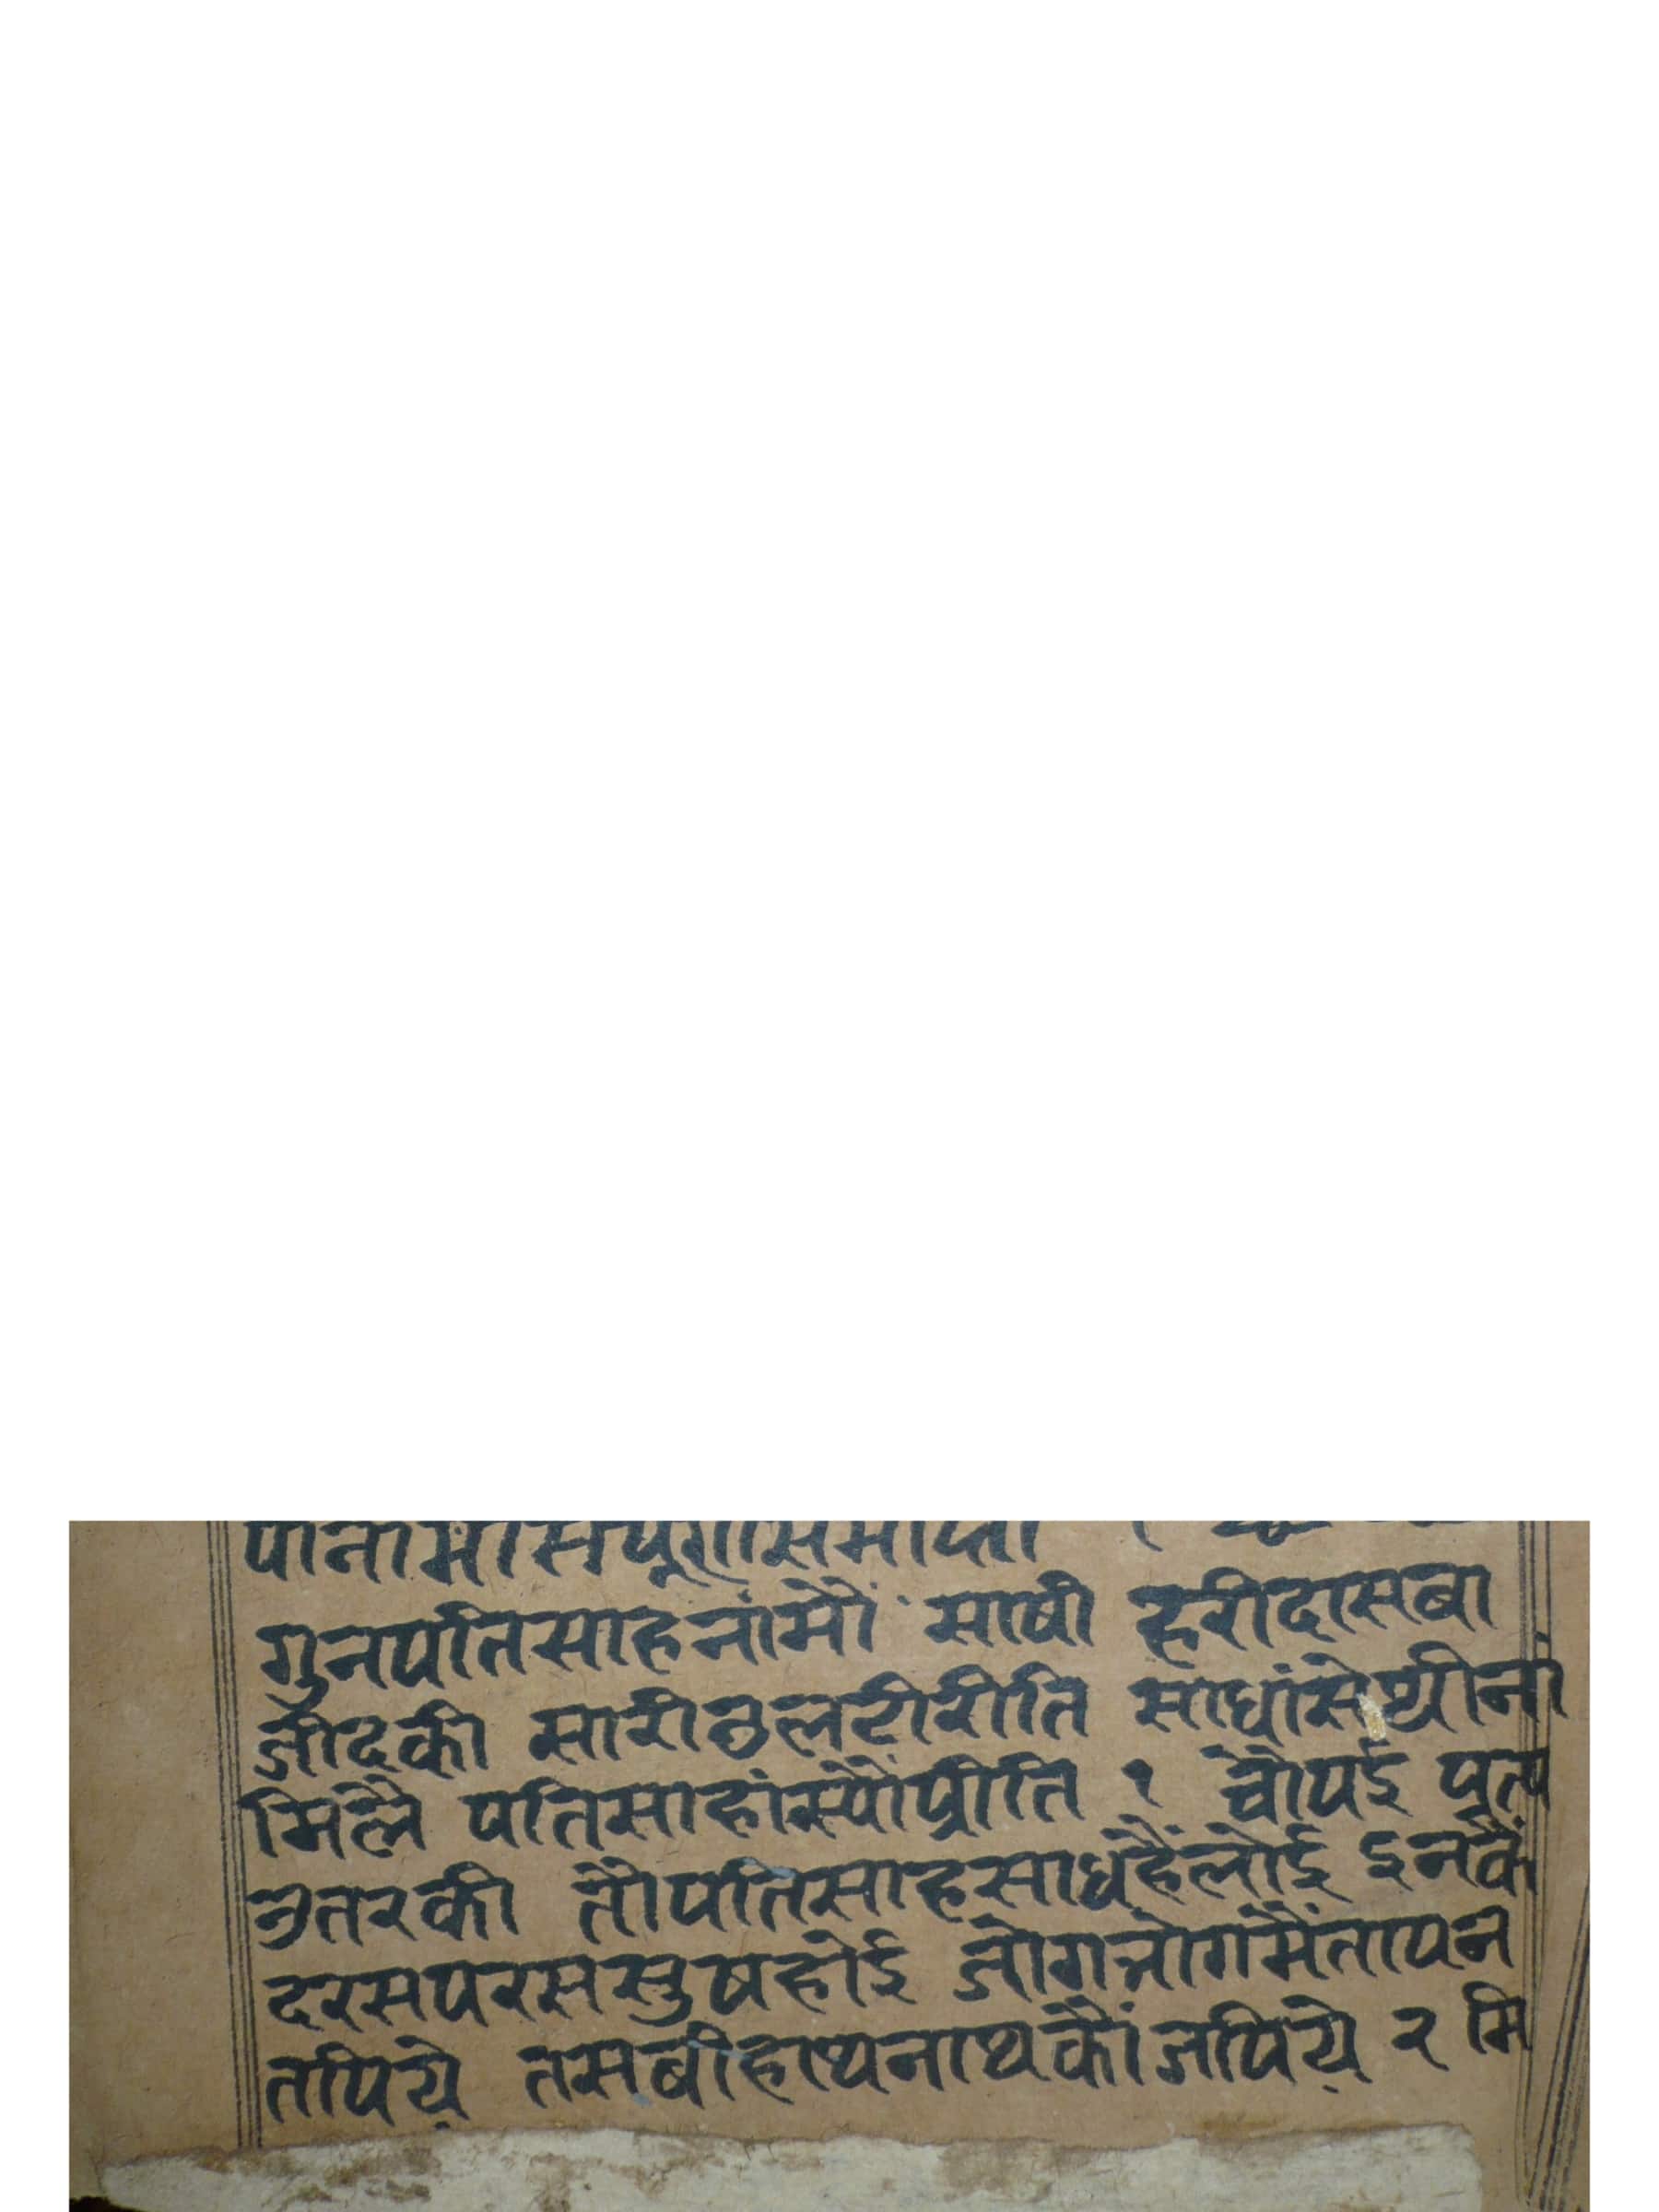 पानामासंपूर्णसमाप्ता १
गुनपतिसाहनांमौं साषी हरीदासबा
जीदकी सारीठलटीरीति साधांसेथीनां
मिलै पतिसाहांस्यौंप्रीति १ चौपई पूत्प
उतरकी तौपतिसाहसाधहैंलोई इनकैं
दरसपरससुषहोई जोगजोगमैंतापन
तपिये़ तसबीहाथनाथकौंजपिये़ २ मि